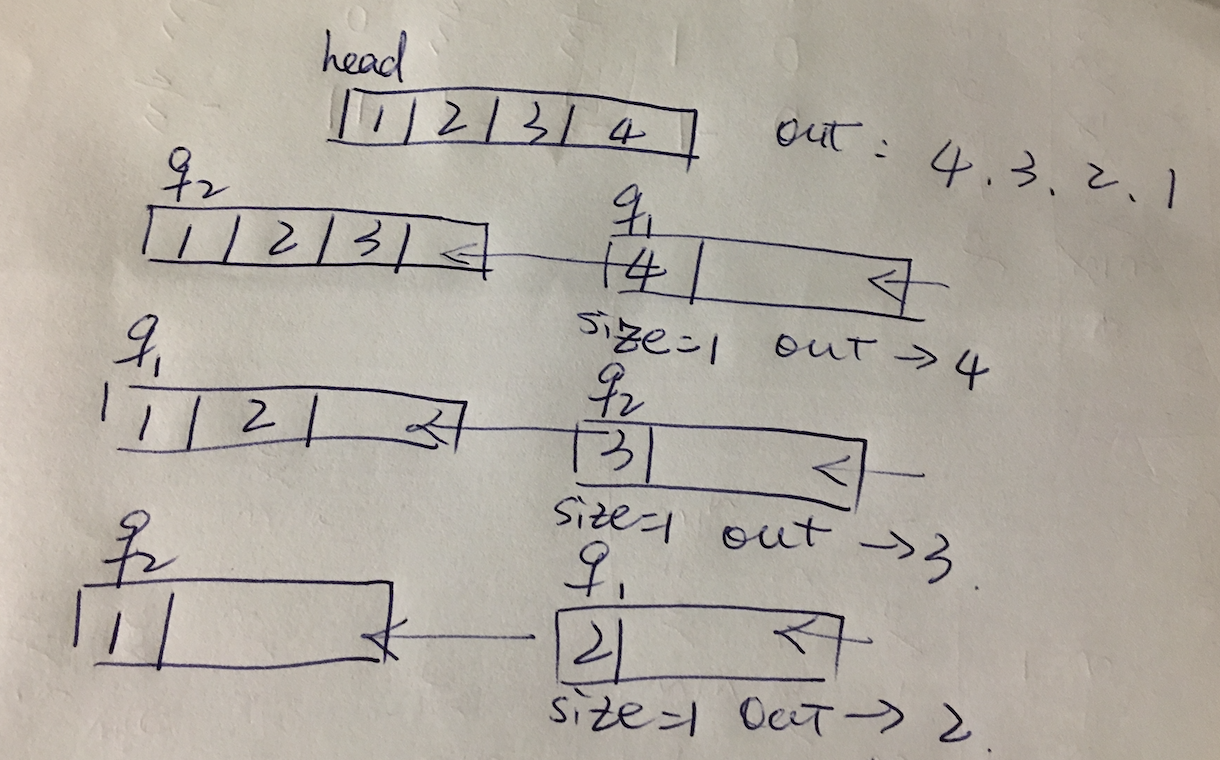 head
1 2 3 4 out: 4.3.2.1
q2 q1
1 2 3 4
size=1 out → 4
q1 q2
1 2 3
size=1 out → 3.
q2 q1
1 2
size=1 out → 2.